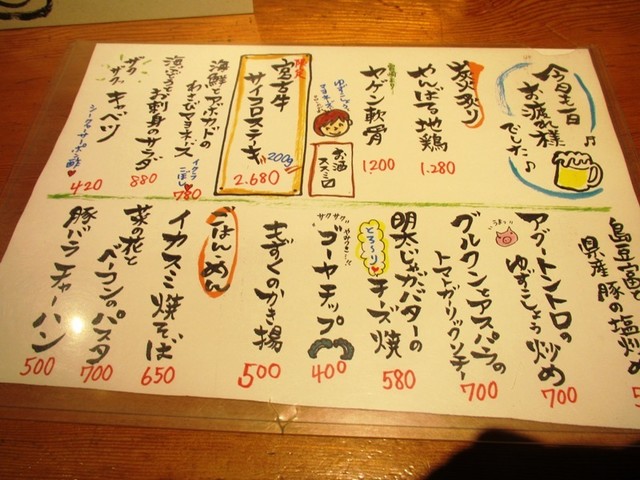 今日も一日
お疲れ様
でした♪
炭炙り
やんばる地鶏
1.280
ヤゲン軟骨
1200
お酒
ススミ〼
限定
宮古牛
サイコロステーキ
200g
2.680
海鮮とアボカドの
わさびマヨネーズ
780
海ぶどうとお刺身のサラダ
880
ザクザク
キャベツ
420
島豆腐
県産豚の塩炒め
アグートントロの
ゆずこしょう炒め
700
グルクンとアスパラの
トマトガーリックソテー
700
明太じゃがバターの
とろ〜り
チーズ焼
580
サクサク
ゴーヤチップ
400
もずくのかき揚
500
ごはん・めん
イカスミ焼そば
650
菜の花と
ベーコンのパスタ
700
豚バラチャーハン
500